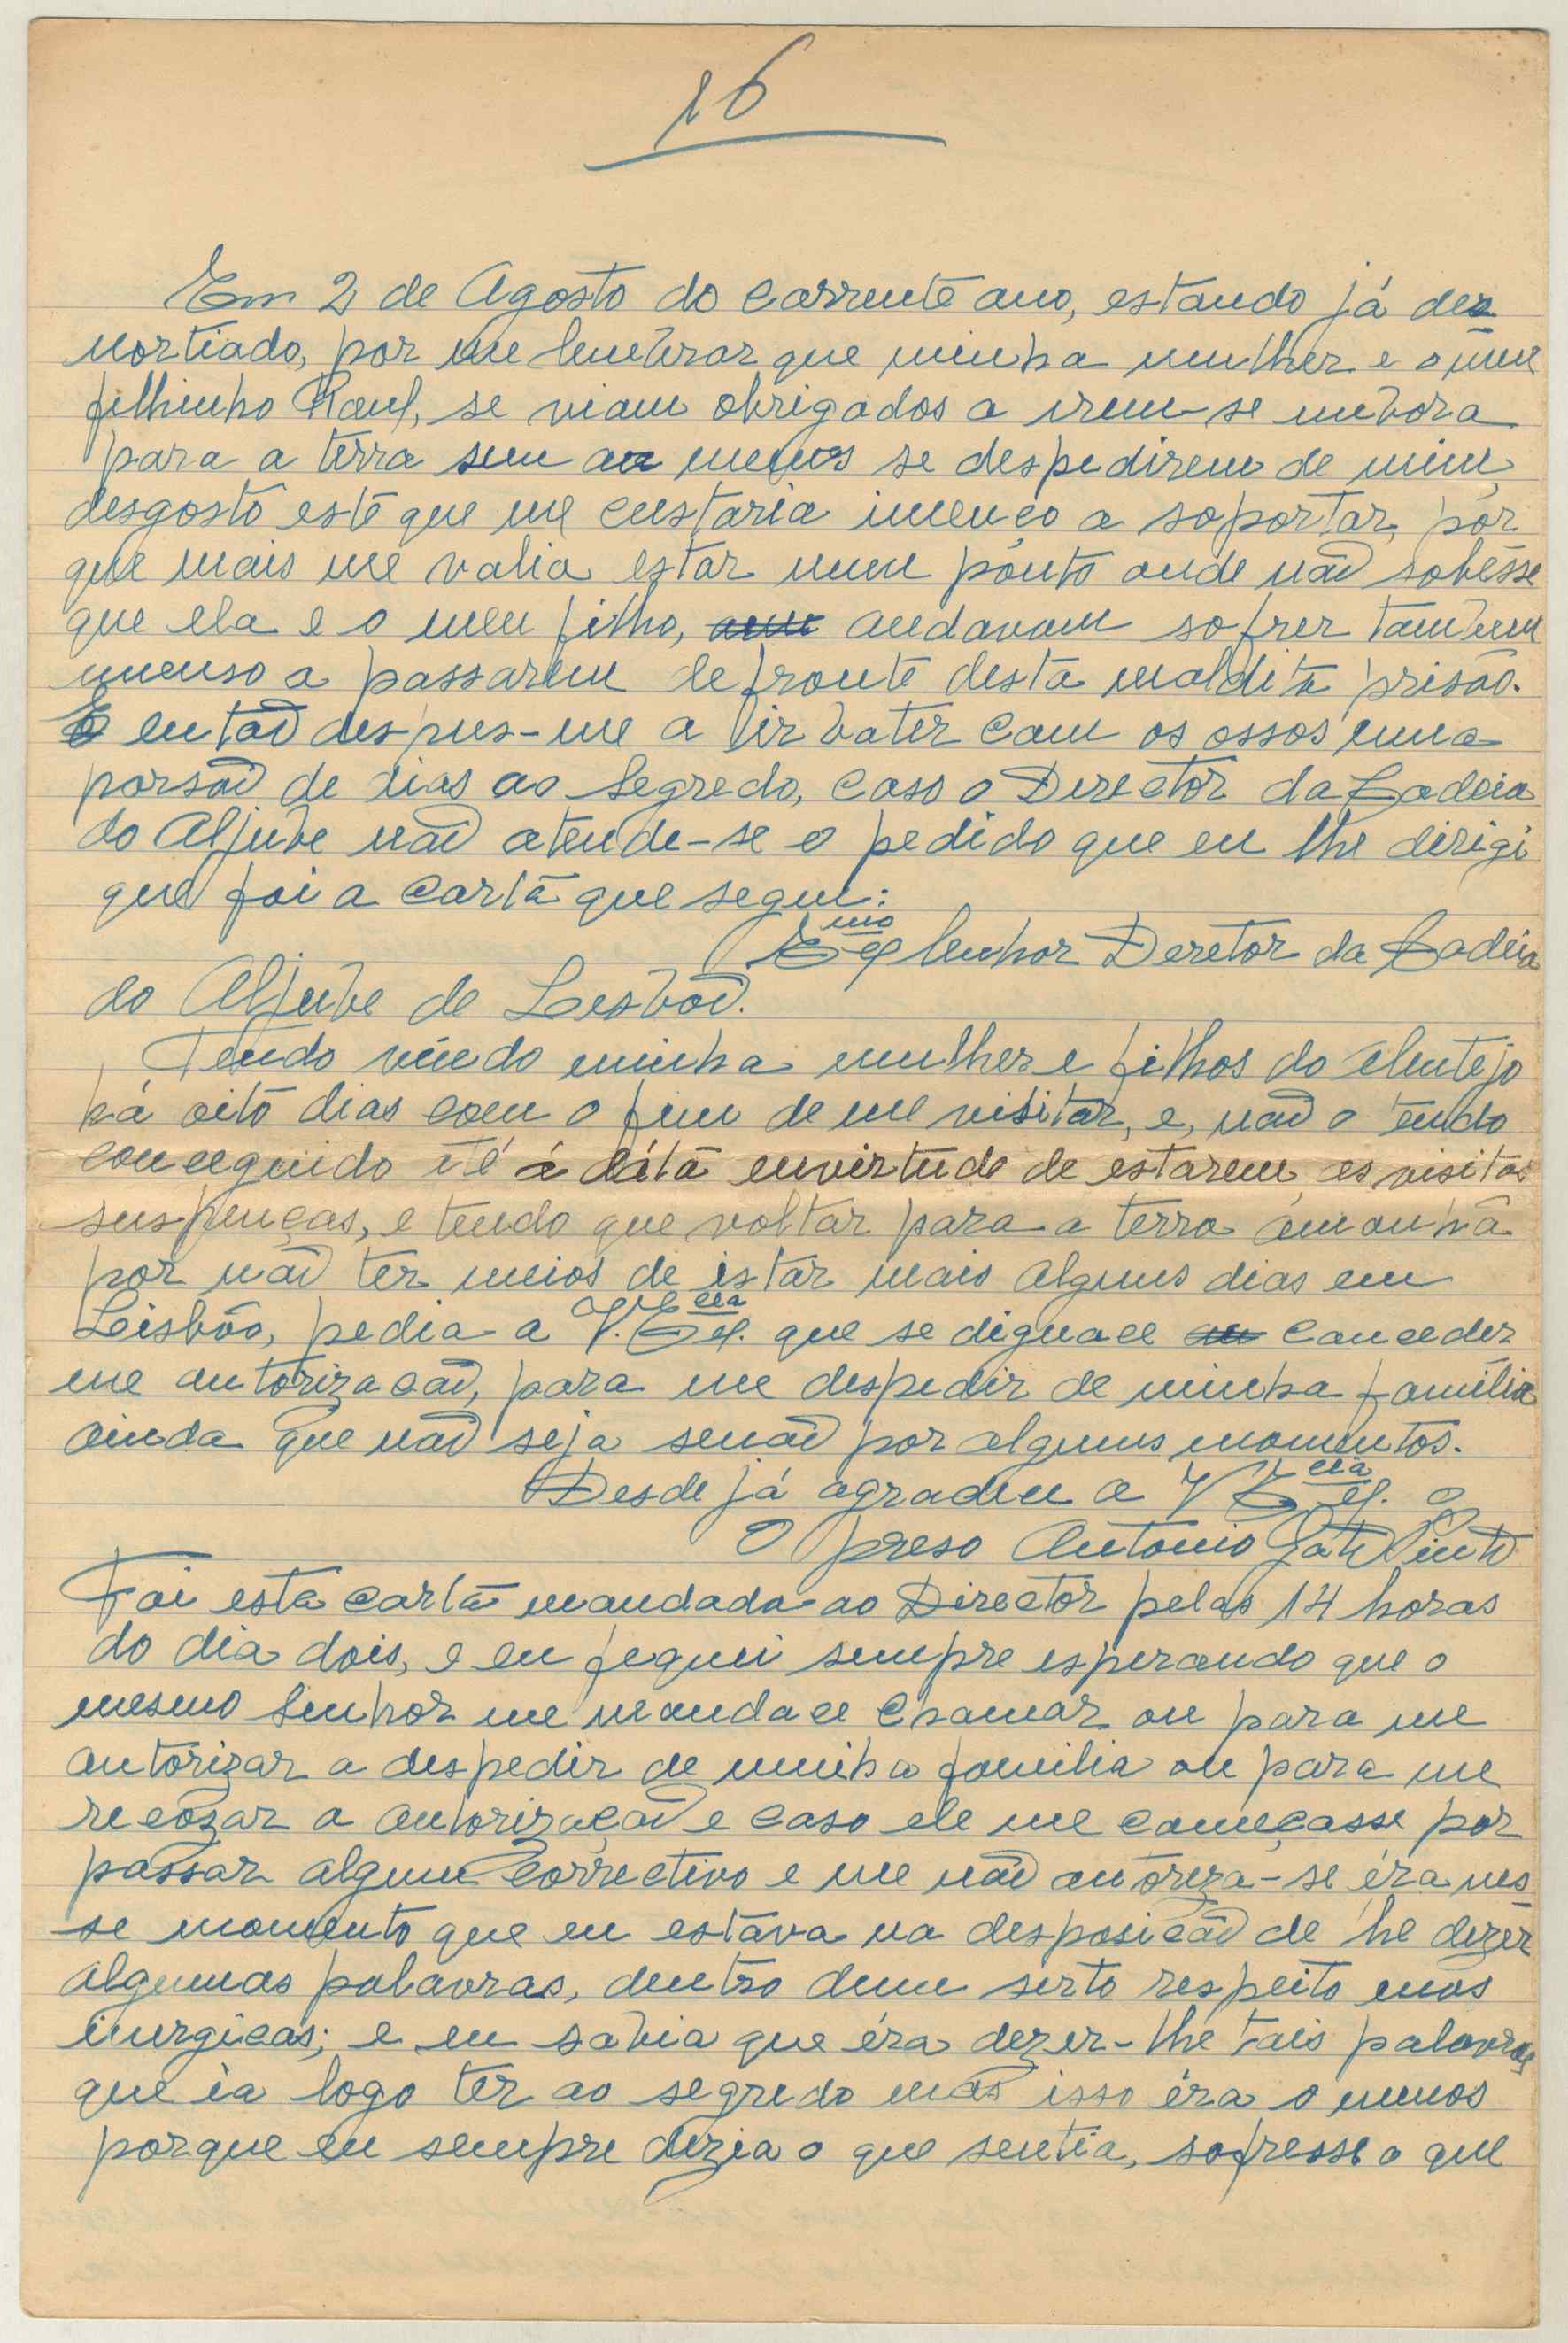 16
Em 2 de Agosto do corrente ano, estando já des
nortiado, por me lembrar que minha mulher e o meu
filhinho Raul, se viam obrigados a irem-se embora
para a terra sem ao menos se despedirem de mim,
desgosto este que me custaria imenço a soportar, por
que mais me valia estar num ponto onde não sobésse
que ela e o meu filho, andavam sofrer tambem
imenso a passarem defronte desta maldita prisão.
E entaõ despus-me a ir bater com os ossos uma
porsaõ de dias ao Segredo, caso o Director da Cadeia
do Aljube naõ atende-se o pedido que eu lhe dirigi
que foi a carta que segue:
Exmo Senhor Deretor da Cadeia
do Aljube de Lesboa.
Tendo vindo minha mulher e filhos do Alentejo
há oito dias com o fim de me visitar, e, naõ o tendo
conceguido té á dáta envirtude de estarem as visitas
suspenças, e tendo que voltar para a terra ámanhã
por naõ ter meios de istar mais alguns dias em
Leisbôa, pedia a V. Excia que se dignace conceder
me autorizacaõ, para me despedir de minha familia
ainda que naõ seja senaõ por alguns momentos.
Desde já agradeu a V Excia.
O preso António Gato Pinto
Foi esta carta mandada ao Director pelas 14 horas
do dia dois, e eu fequei sempre esperando que o
mesmo Senhor me mandace chamar ou para me
autorizar a despedir de minha familia ou para me
recozar a autorizaçaõ e caso ele me começasse por
passar algum correctivo e me naõ autoreza-se éra nes
se momento que eu estava na desposicaõ de lhe dezer
algumas palavras, dentro dum serto respeito mas
inurgicas; e eu sabia que éra dezer-lhe tais palavras
que ia logo ter ao segredo mas isso éra o menos
porque eu sempre dezia o que sentia, sofresse o que